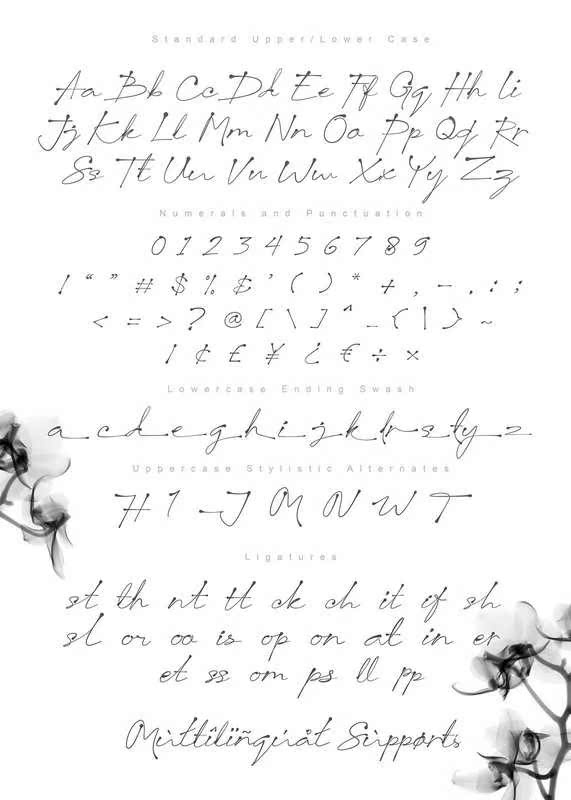 Standard Upper/Lower Case
Aa Bb Cc Dd Ee Ff Gg Hh Ii
Jj Kk Ll Mm Nn Oo Pp Qq Rr
Ss Tt Uu Vv Ww Xx Yy Zz
Numerals and Punctuation
0 1 2 3 4 5 6 7 8 9
! “ ” # $ % & ' ( ) * + , - . : ;
< = > ? @ [ \ ] ^ _ { | } ~
¡ ¢ £ ¥ ¿ € ÷ ×
Lowercase Ending Swash
a c d e g h i j k l r s t y z
Uppercase Stylistic Alternates
H I J M N W T
Ligatures
st th nt tt ck ch it if sh
sl or oo is op on at in er
et ss om ps ll pp